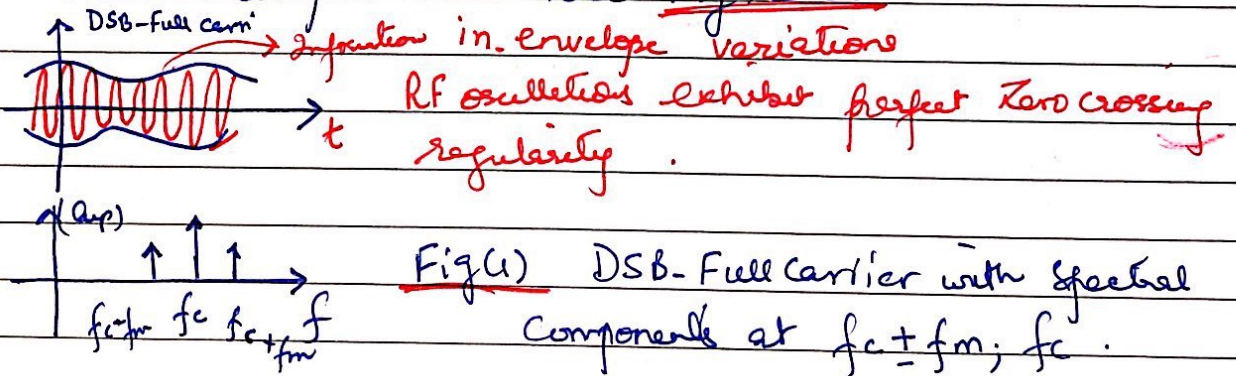 DSB-Full Carri
Information in envelope variations
RF oscillations exhibit perfect Zero crossing
t
regularity.
(Amp)
Fig(1) DSB-Full Carrier with Spectral
fc-fm fc fc+fm f
Components at fc ± fm; fc.